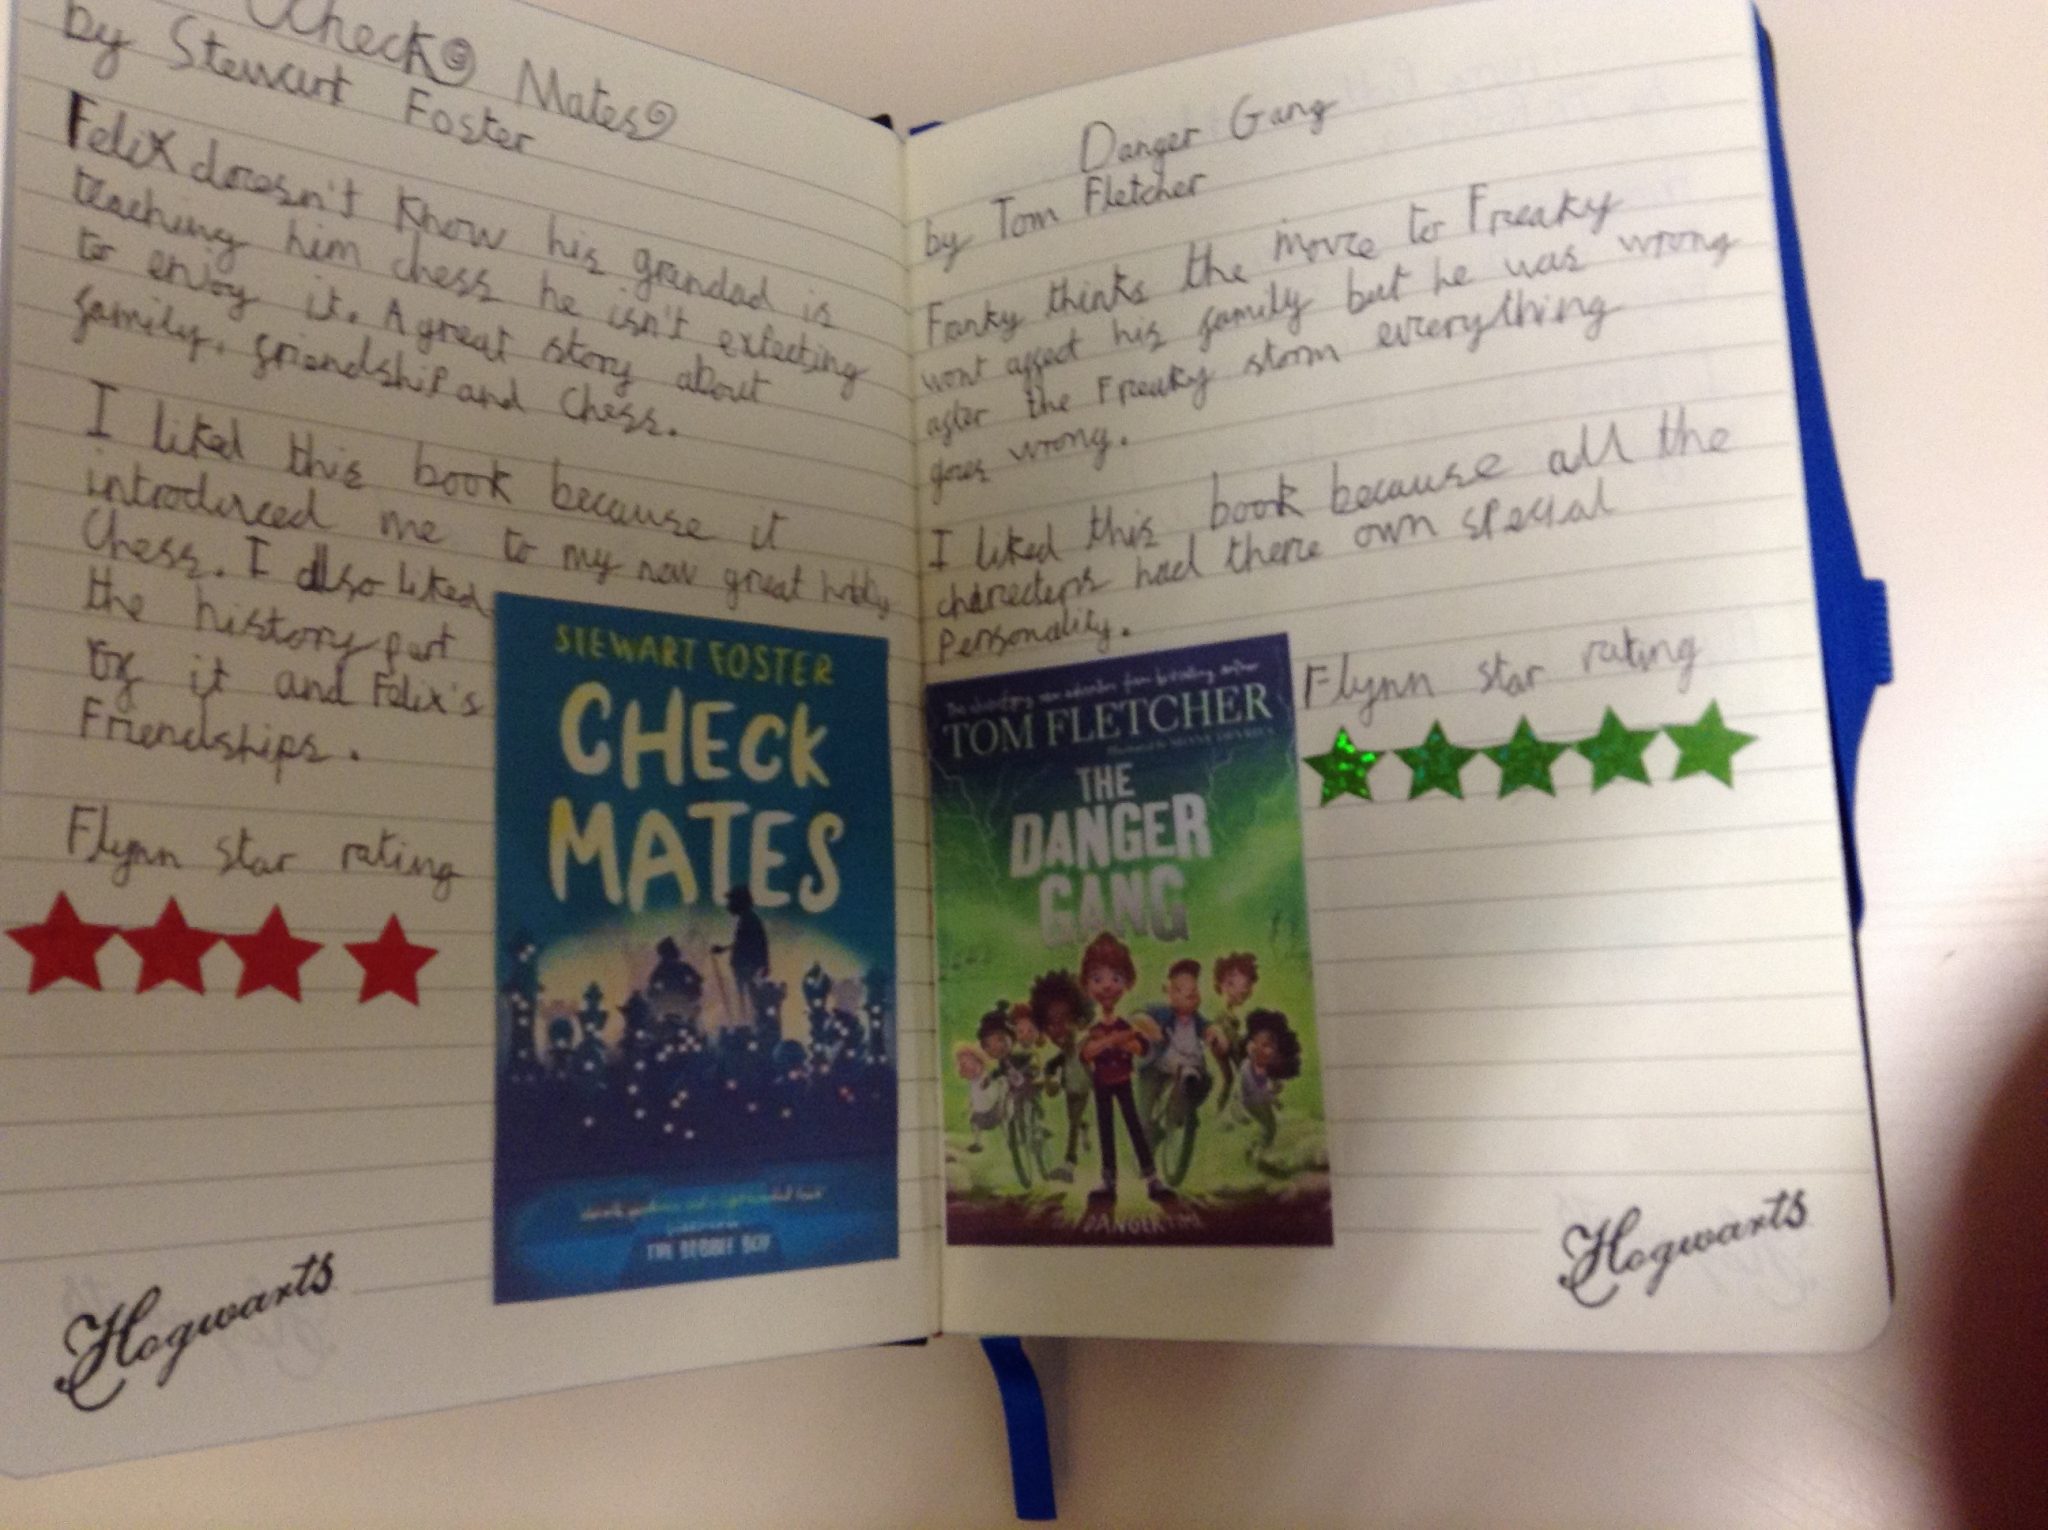 Check Mates
by Stewart Foster
Felix doesn't know his grandad is
teaching him chess he isn't exfecting
to enjoy it. A great story about
family, friendship and chess.
I liked this book because it
introduced me to my new great hobby
Chess. I also liked
the history part
of it and Felix's
Friendships.
Flynn star rating
STEWART FOSTER
CHECK
MATES
THE BUBBLE BOY
Hogwarts
Danger Gang
by Tom Fletcher
Franky thinks the move to Freaky
wont affect his family but he was wrong
after the Freaky storm everything
goes wrong.
I liked this book because all the
charecters had there own special
Personality.
Flynn star rating
new adventure from bestselling author
TOM FLETCHER
THE
DANGER
GANG
DANGER
Hogwarts